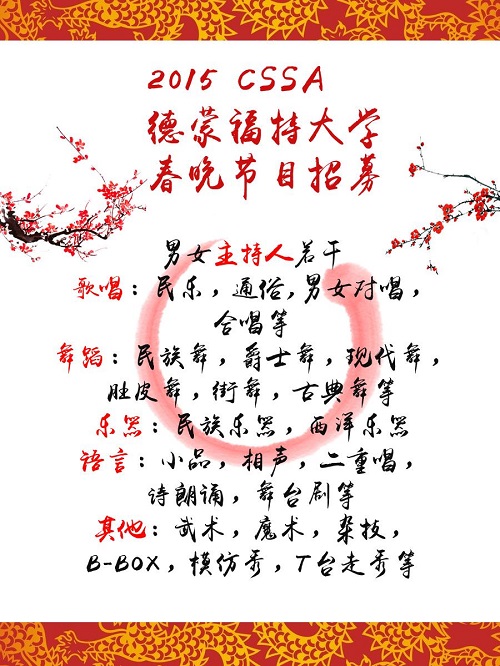 2015 CSSA
德蒙福特大学
春晚节目招募
男女主持人若干
歌唱：民乐，通俗，男女对唱，
合唱等
舞蹈：民族舞，爵士舞，现代舞，
肚皮舞，街舞，古典舞等
乐器：民族乐器，西洋乐器
语言：小品，相声，二重唱，
诗朗诵，舞台剧等
其他：武术，魔术，杂技，
B-BOX，模仿秀，T台走秀等